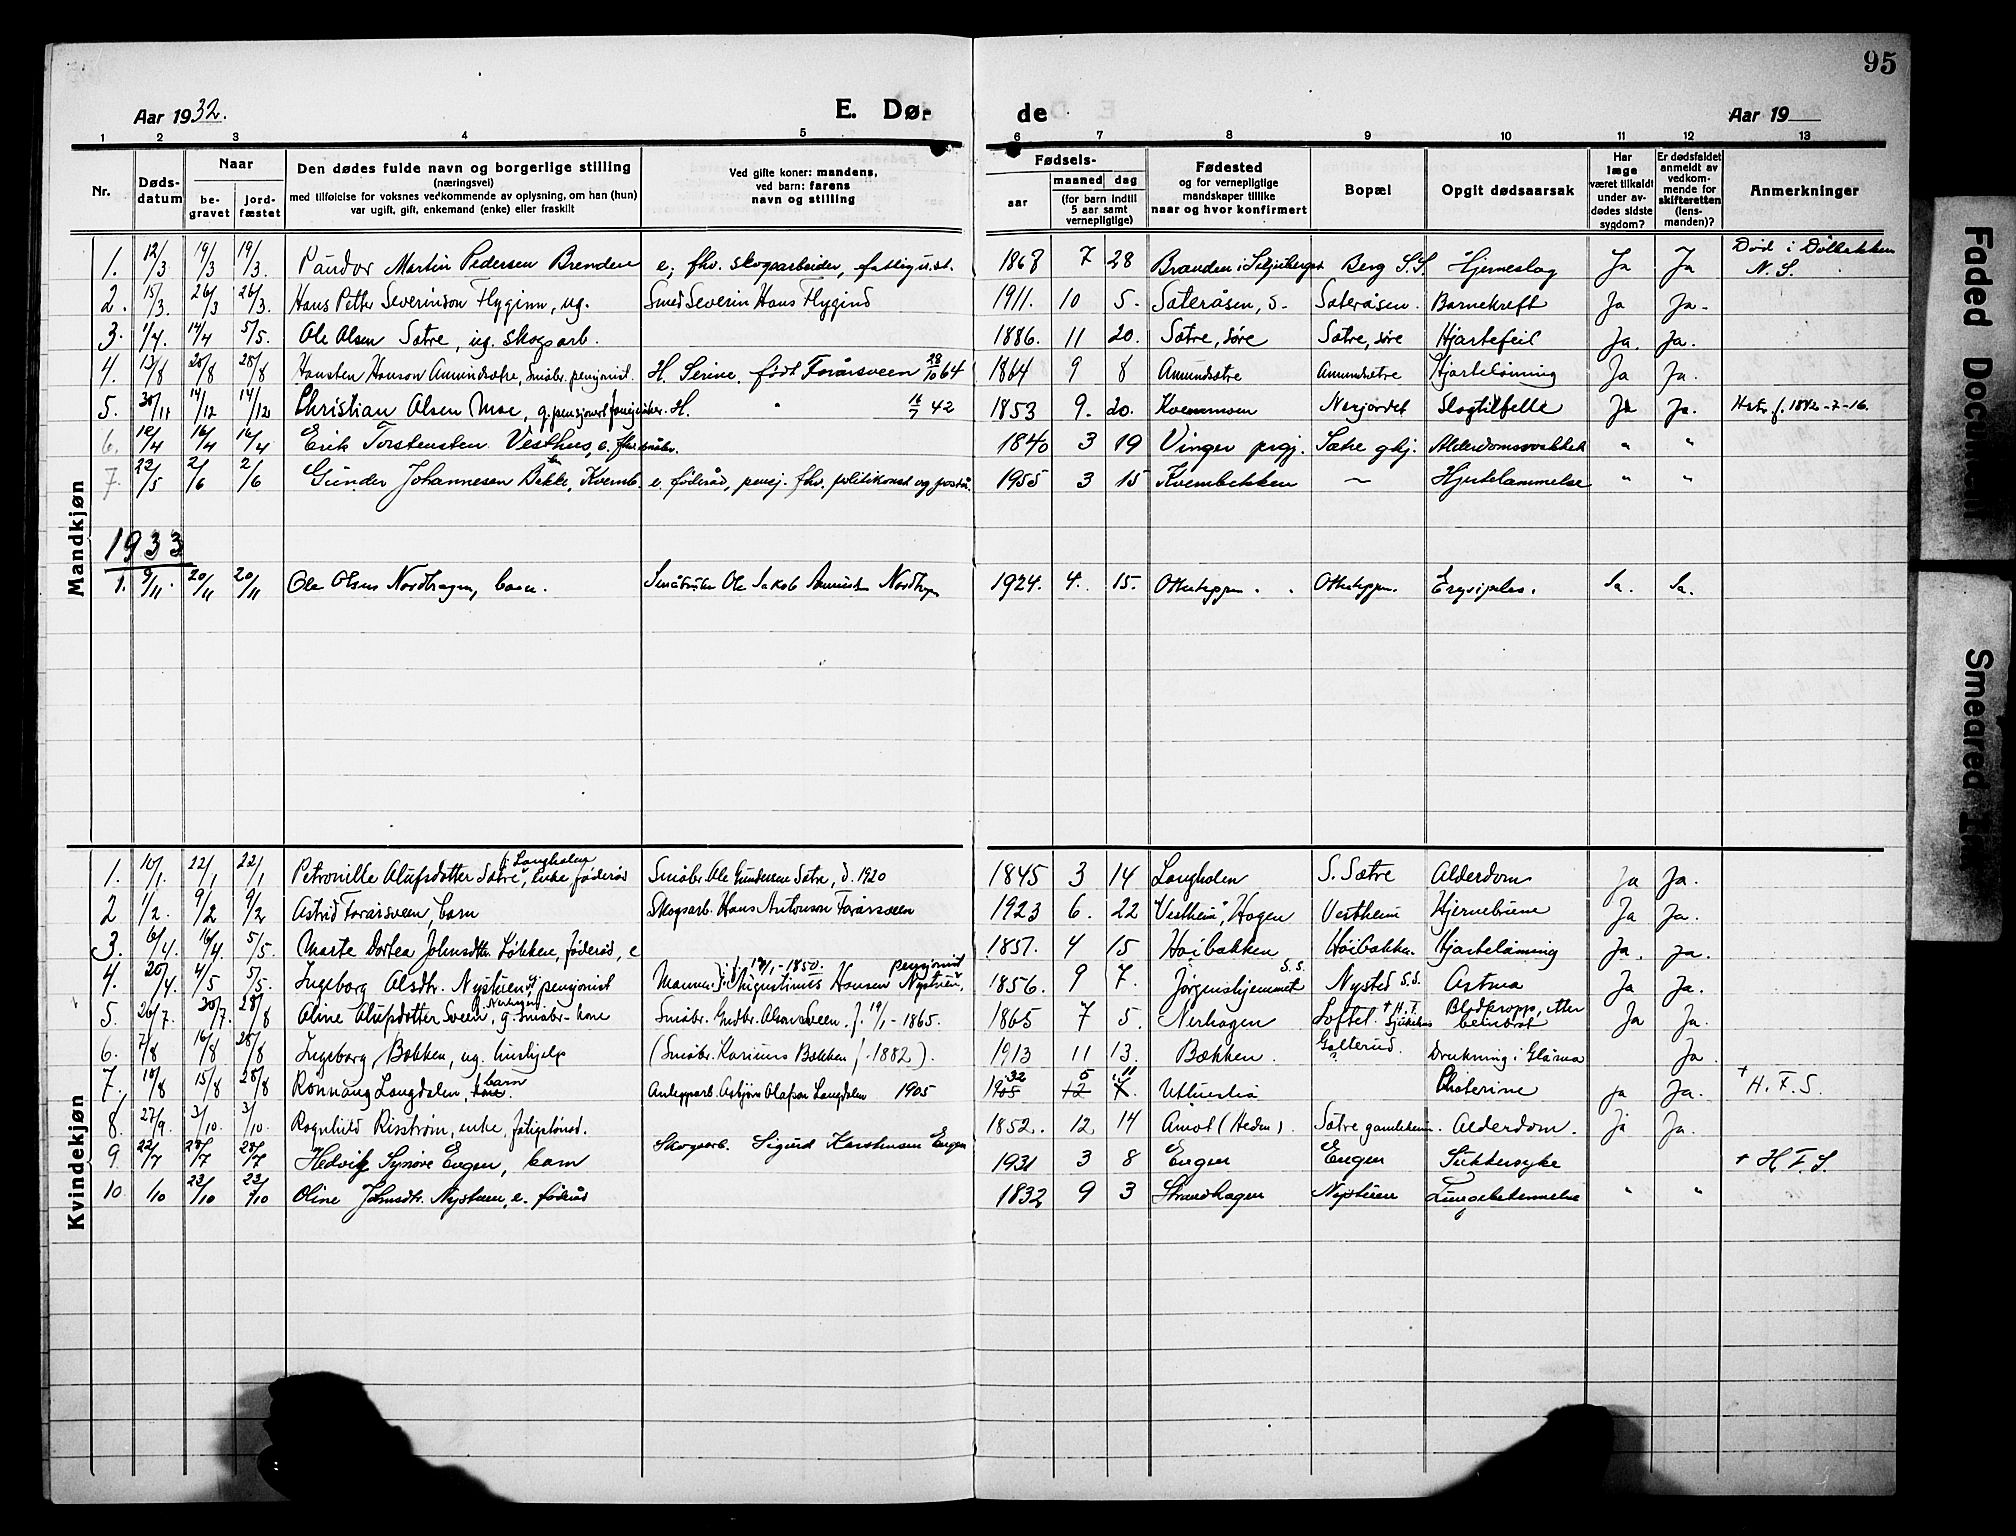 95
Aar 1932.
E. Dø- de
Aar 19
1 2 3 4 5 6 7 8 9 10 11 12 13
Nr.
Døds-
datum
Naar
be-
gravet
jord-
fæstet
Den dødes fulde navn og borgerlige stilling
(næringsvei)
med tilføielse for voksnes vedkommende av oplysning, om han (hun)
var ugift, gift, enkemand (enke) eller fraskilt
Ved gifte koner: mandens,
ved barn: farens
navn og stilling
Fødsels-
aar
maaned dag
(for barn indtil
5 aar samt
vernepligtige)
Fødested
og for vernepligtige
mandskaper tillike
naar og hvor konfirmert
Bopæl
Opgit dødsaarsak
Har
læge
været tilkaldt
under av-
dødes sidste
sygdom?
Er dødsfaldet
anmeldt av
vedkom-
mende for
skifteretten
(lens-
manden)?
Anmerkninger
Mandkjøn
1. 12/3 19/3 19/3. Martin Pedersen Brenden e, fhv. skogsarbeider, 1868 7 28 Berg S.S. Hjerneslag Ja Ja Død i
N. S.
2. 15/3. 26/3 26/3. Hans Petter Severinson Flyginn, ug. Smed Severin Hans Flygind 1911. 10 5. Sæteråsen, S. Sæteråsen. Barnekreft Ja Ja.
3. 1/4. 14/4 5/5. Ole Olsen Sætre, ug. skogsarb. 1886. 11 20. Sætre, søre Sætre, søre Hjartefeil Ja. Ja.
4. 13/8 20/8 28/8 Hansen Amundsætre, Småbr. pensjonist. H. Serine, født Foråsveen 28/10 64 1864 9 8 Amundsætre Amundsætre Hjartelamning Ja Ja.
5. 30/11 14/12 14/12 Christian Olsen Moe, g. pensjonert H. " 16/7 42 1853 9. 20. Kvemmoen Nerjordet Slagtilfelle Ja Ja. 1842-7-16.
6. 12/4 16/4 16/4 Erik Torstensten Vesthus, e. fhv. småbr. 1840 3 19 Vinger prgj. Sætre ghj. Alderdomssvakhet " "
7. 22/5 2/6 2/6 Gunder Johannesen Bekke, Kvernb. e. føderåd, pensj. fhv. politikonst og postå. 1955 3 15 Kvembekken ~ Hjertelammelse " "
1933
1. 9/11. 20/11 20/11 Ole Olsen Nordhagen, barn. Småbruker Ole Jakob Amundsen Nordhagen 1924. 4. 15. Erysipelas. Ja. Ja.
Kvindekjøn
1. 10/1. 22/1 22/1 Petronille Olufsdotter Sætre, f. Langholen enke føderåd Småbr. Ole Gundersen Sætre, d. 1920 1845 3 14 Langholen S. Sætre Alderdom Ja Ja.
2 1/2. 9/2 9/2 Astrid Foråsveen, barn Skogsarb. Hans Antonson Foråsveen 1923 6. 22 "Vestheim", Hagen Vestheim Hjernebetennelse Ja Ja.
3. 6/4. 16/4. 5/5. Marte Dortea Johnsdtr. Løkken, føderåd, e 1851. 4 15 Høibakken Høibakken. Hjartelamning Ja. Ja.
4. 20/4. 4/5 5/5. Ingeborg Olsdtr. Nystuen g. pensjonist Mannen: f. 1850. Augustinus Hansen Nystuen, pensjonist 1856. 9 7. Jørgenshjemmet S.S. Nysted S.S. Astma Ja Ja.
5. 26/7. 30/7. 28/8 Oline Olufsdotter Sveen f. Nerhagen, g. småbr-kone Småbr. Gudbr. Olson Sveen. f. 19/1-1865. 1865 7 5. Nerhagen Loftet. † H. F. Sjukehus Blodpropp, etter beinbrot Ja Ja.
6. 7/8 16/8 28/8 Ingeborg Bækken, ug. hushjelp (Småbr. Karinus Bækken f. 1882). 1913 11 13. Bækken. Galterud. Drukning i Glåma Ja
7. 10/8 15/8 28/8 Rønnaug Langdalen, barn Anleggsarb. Asbjørn Olafson Langdalen 1905 1905 32 12 5 7. 11 Ja Ja. † H. F. S.
8. 27/9. 3/10. 3/10. Ragnhild Risstrøm, enke, fatigstønad. 1852. 12 14 Åmot (Hedm). Sætre gamleheim. Alderdom. Ja Ja.
9 22/7 28/7 28/7 Hedvig Synøve Engen, barn Skogsarb. Sigurd Karstensen Engen 1931 3 8 Engen Engen Sukkersyke † H. F. S.
10. /10 22/10 22/10 Oline Johnsdtr. Nystuen, e. føderåd 1832 9 3 Strandhagen Nystuen Lungebetennelse " "
Faded Document
Smeared Ink